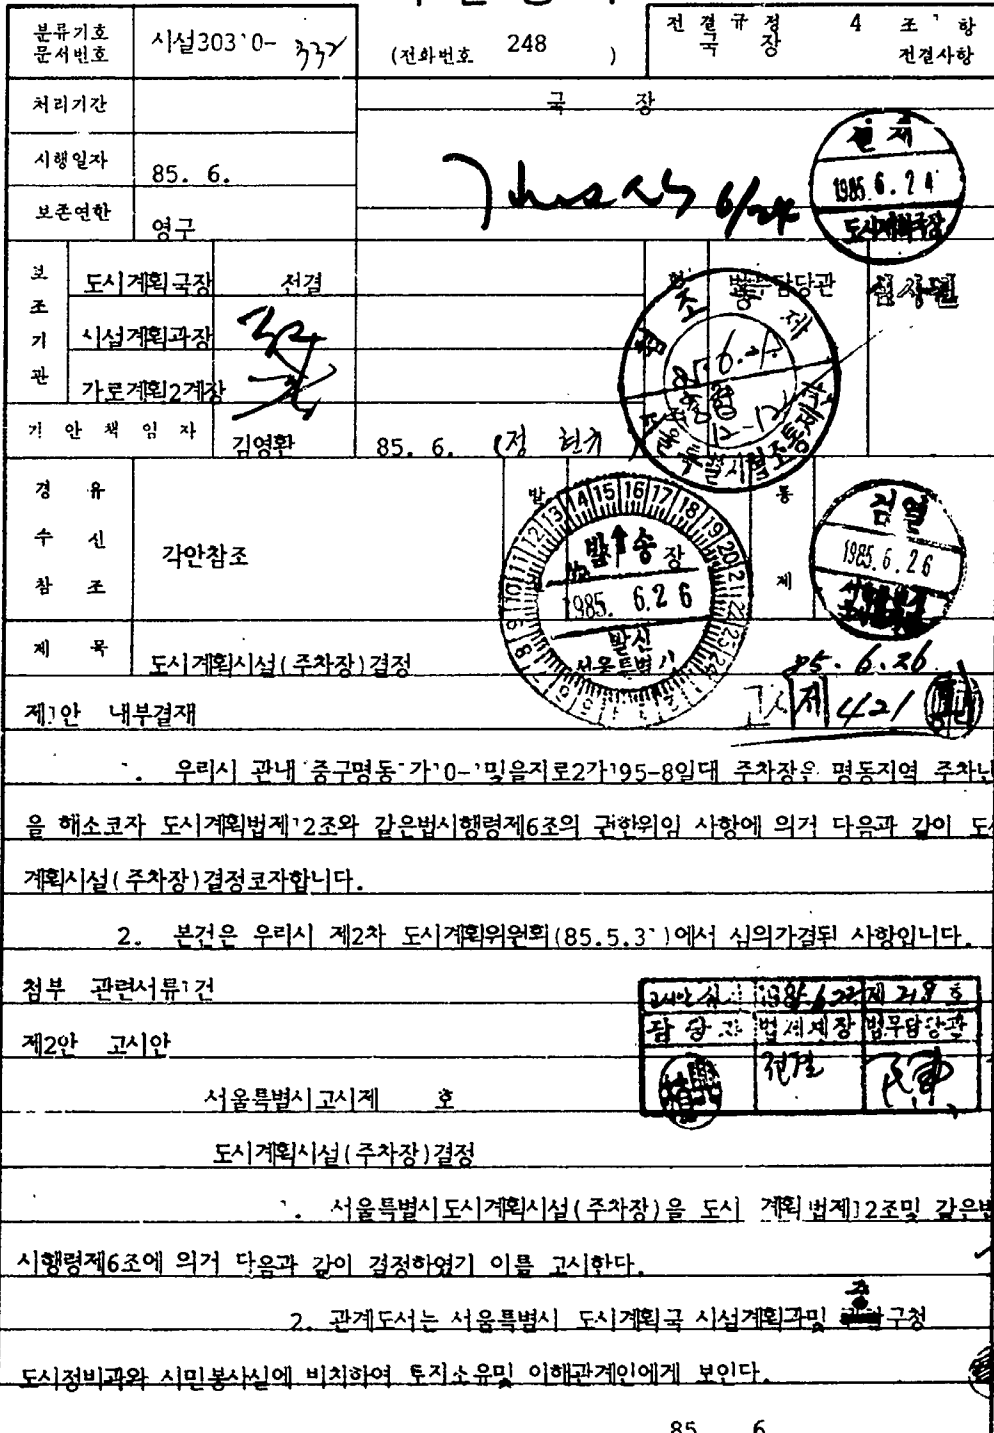 분류기호
문서번호
시설3030-332
(전화번호 248 )
전결규정 4 조 1 항
국 장 전결사항
처리기간
국 장
시행일자
85. 6.
6/24
1985. 6. 24
도시계획국장
보존연한
영구
보조기관
도시계획국장 전결
법무담당관
심사관
시설계획과장
가로계획2계장
기안책임자
김영환
85. 6.
(정 현규)
경유
수신
참조
각안참조
발송
1985. 6. 26
발신
서울특별시
통제
검열
1985. 6. 26
제 목
도시계획시설(주차장)결정
85. 6. 26
고시 제 421
제1안 내부결재
1. 우리시 관내 중구명동1가10-1및을지로2가195-8일대 주차장은 명동지역 주차난
을 해소코자 도시계획법제12조와 같은법시행령제6조의 권한위임 사항에 의거 다음과 같이 도시
계획시설(주차장)결정코자합니다.
2. 본건은 우리시 제2차 도시계획위원회(85.5.31)에서 심의가결된 사항입니다.
첨부 관련서류1건
고시안심사 1985.6.22 제 218 호
담당자 법제계장 법무담당관
전결
제2안 고시안
서울특별시고시제 호
도시계획시설(주차장)결정
1. 서울특별시도시계획시설(주차장)을 도시 계획법제12조및 같은법
시행령제6조에 의거 다음과 같이 결정하였기 이를 고시한다.
2. 관계도서는 서울특별시 도시계획국 시설계획과및 중구청
도시정비과와 시민봉사실에 비치하여 토지소유및 이해관계인에게 보인다.
85 6